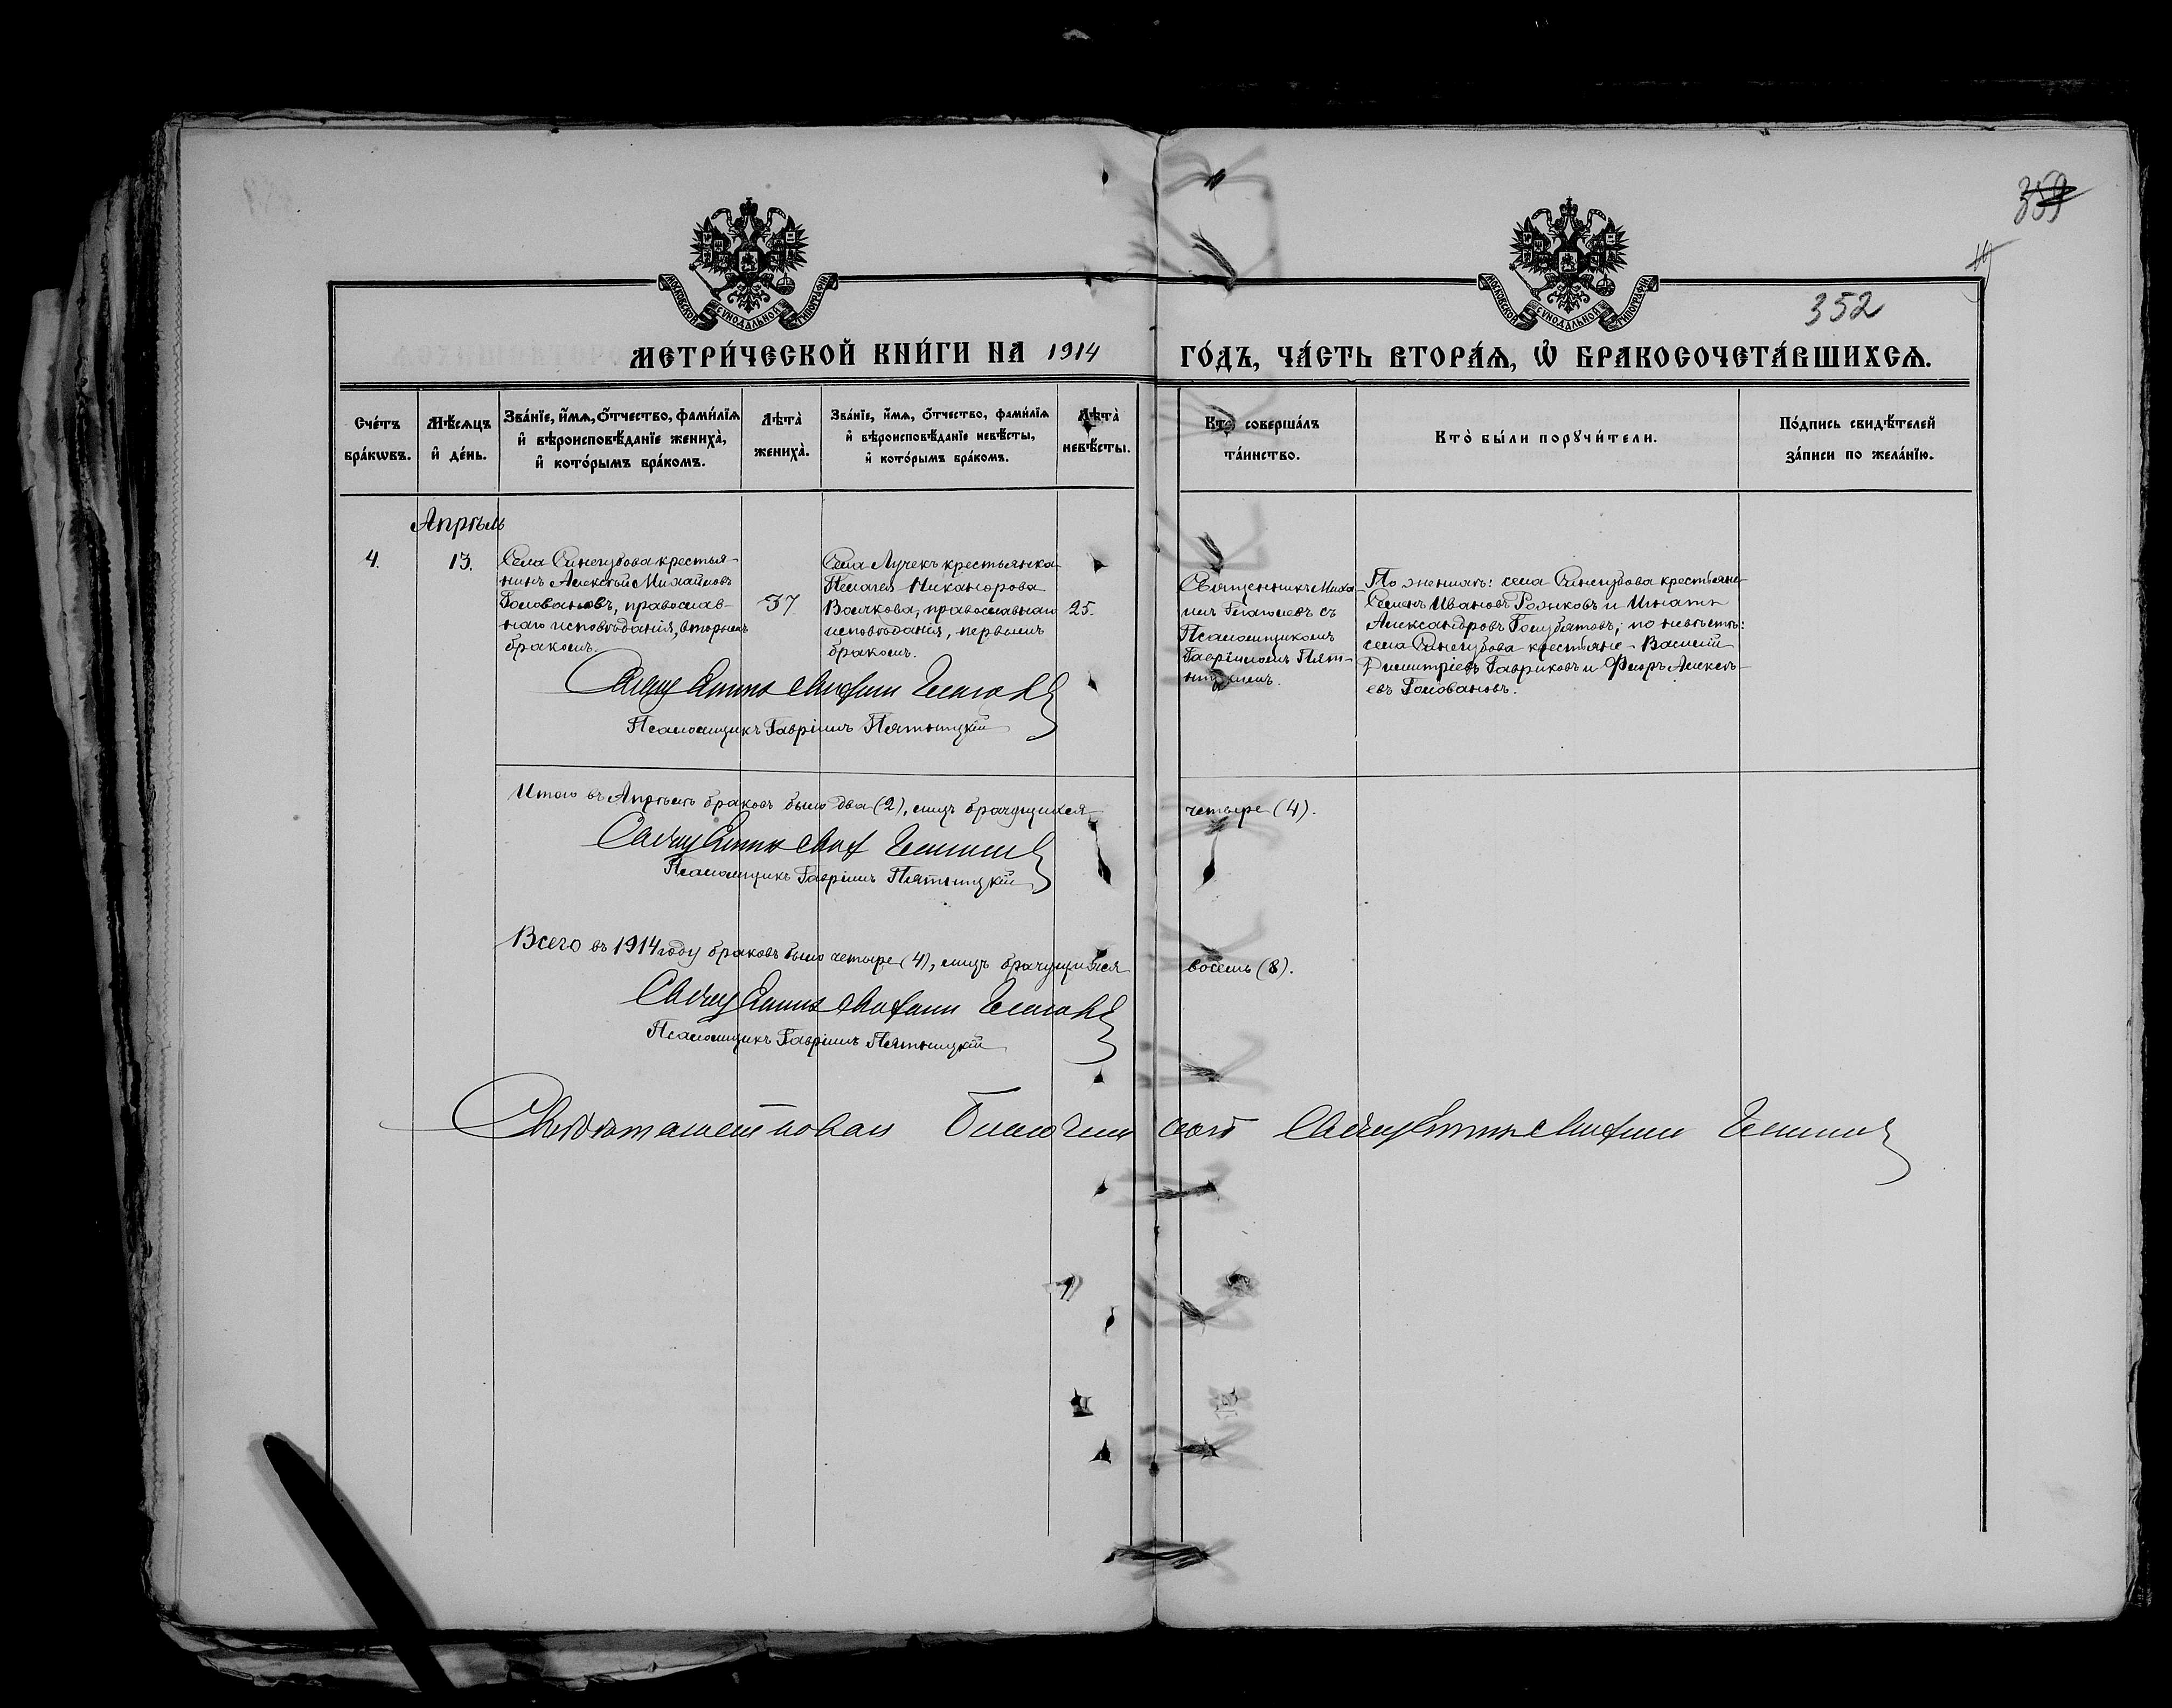 359
352
МОСКОВСКОЙ СѴНОДАЛЬНОЙ ТИПОГРАФІИ
МОСКОВСКОЙ СѴНОДАЛЬНОЙ ТИПОГРАФІИ
МЕТРИ́ЧЕСКОЙ КНИ́ГИ НА 1914 ГО́ДЪ, ЧА́СТЬ ВТОРА́Ѧ, Ѡ҆ БРАКОСОЧЕТА́ВШИХСѦ.
Сче́тъ бра́кѡвъ.
Мѣ́сѧцъ и҆ де́нь.
Зва́нїе, и҆́мѧ, ѻ҆́тчество, фами́лїѧ и҆ вѣроисповѣ́данїе жениха̀, и҆ кото́рымъ бра́комъ.
Лѣта̀ жениха̀.
Зва́нїе, и҆́мѧ, ѻ҆́тчество, фами́лїѧ и҆ вѣроисповѣ́данїе невѣ́сты, и҆ кото́рымъ бра́комъ.
Лѣта̀ невѣ́сты.
Кто̀ соверша́лъ та́инство.
Кто̀ бы́ли порꙋчи́тели.
По́дпись свидѣ́телей за́писи по жела́нїю.
Апрѣль
4.
13.
Села Синегубова крестья-
нинъ Алексѣй Михайловъ
Головановъ, православ-
наго исповѣданія, вторымъ
бракомъ.
37
Села Лучекъ крестьянка
Пелагея Никанорова
Волчкова, православнаго
исповѣданія, первымъ
бракомъ.
25.
Священникъ Миха-
илъ Глаголевъ съ
Псаломщикомъ
Гавріиломъ Пят-
ницкимъ.
По женихѣ: села Синегубова крестьяне
Семенъ Ивановъ Рожковъ и Игнатъ
Александровъ Голубятовъ; по невѣстѣ:
села Синегубова крестьяне - Василій
Димитріевъ Гавриковъ и Ѳедоръ Алексѣ-
евъ Головановъ.
Священникъ Михаилъ Глаголевъ
Псаломщикъ Гавріилъ Пятницкій
Итого въ Апрѣлѣ браковъ было два (2), лицъ брачущихся четыре (4).
Священникъ Мих Глаголевъ
Псаломщикъ Гавріилъ Пятницкій
Всего въ 1914 году браковъ было четыре (4), лицъ брачущихся восемь (8).
Священникъ Михаилъ Глаголевъ
Псаломщикъ Гавріилъ Пятницкій
Священникъ Михаилъ Глаголевъ